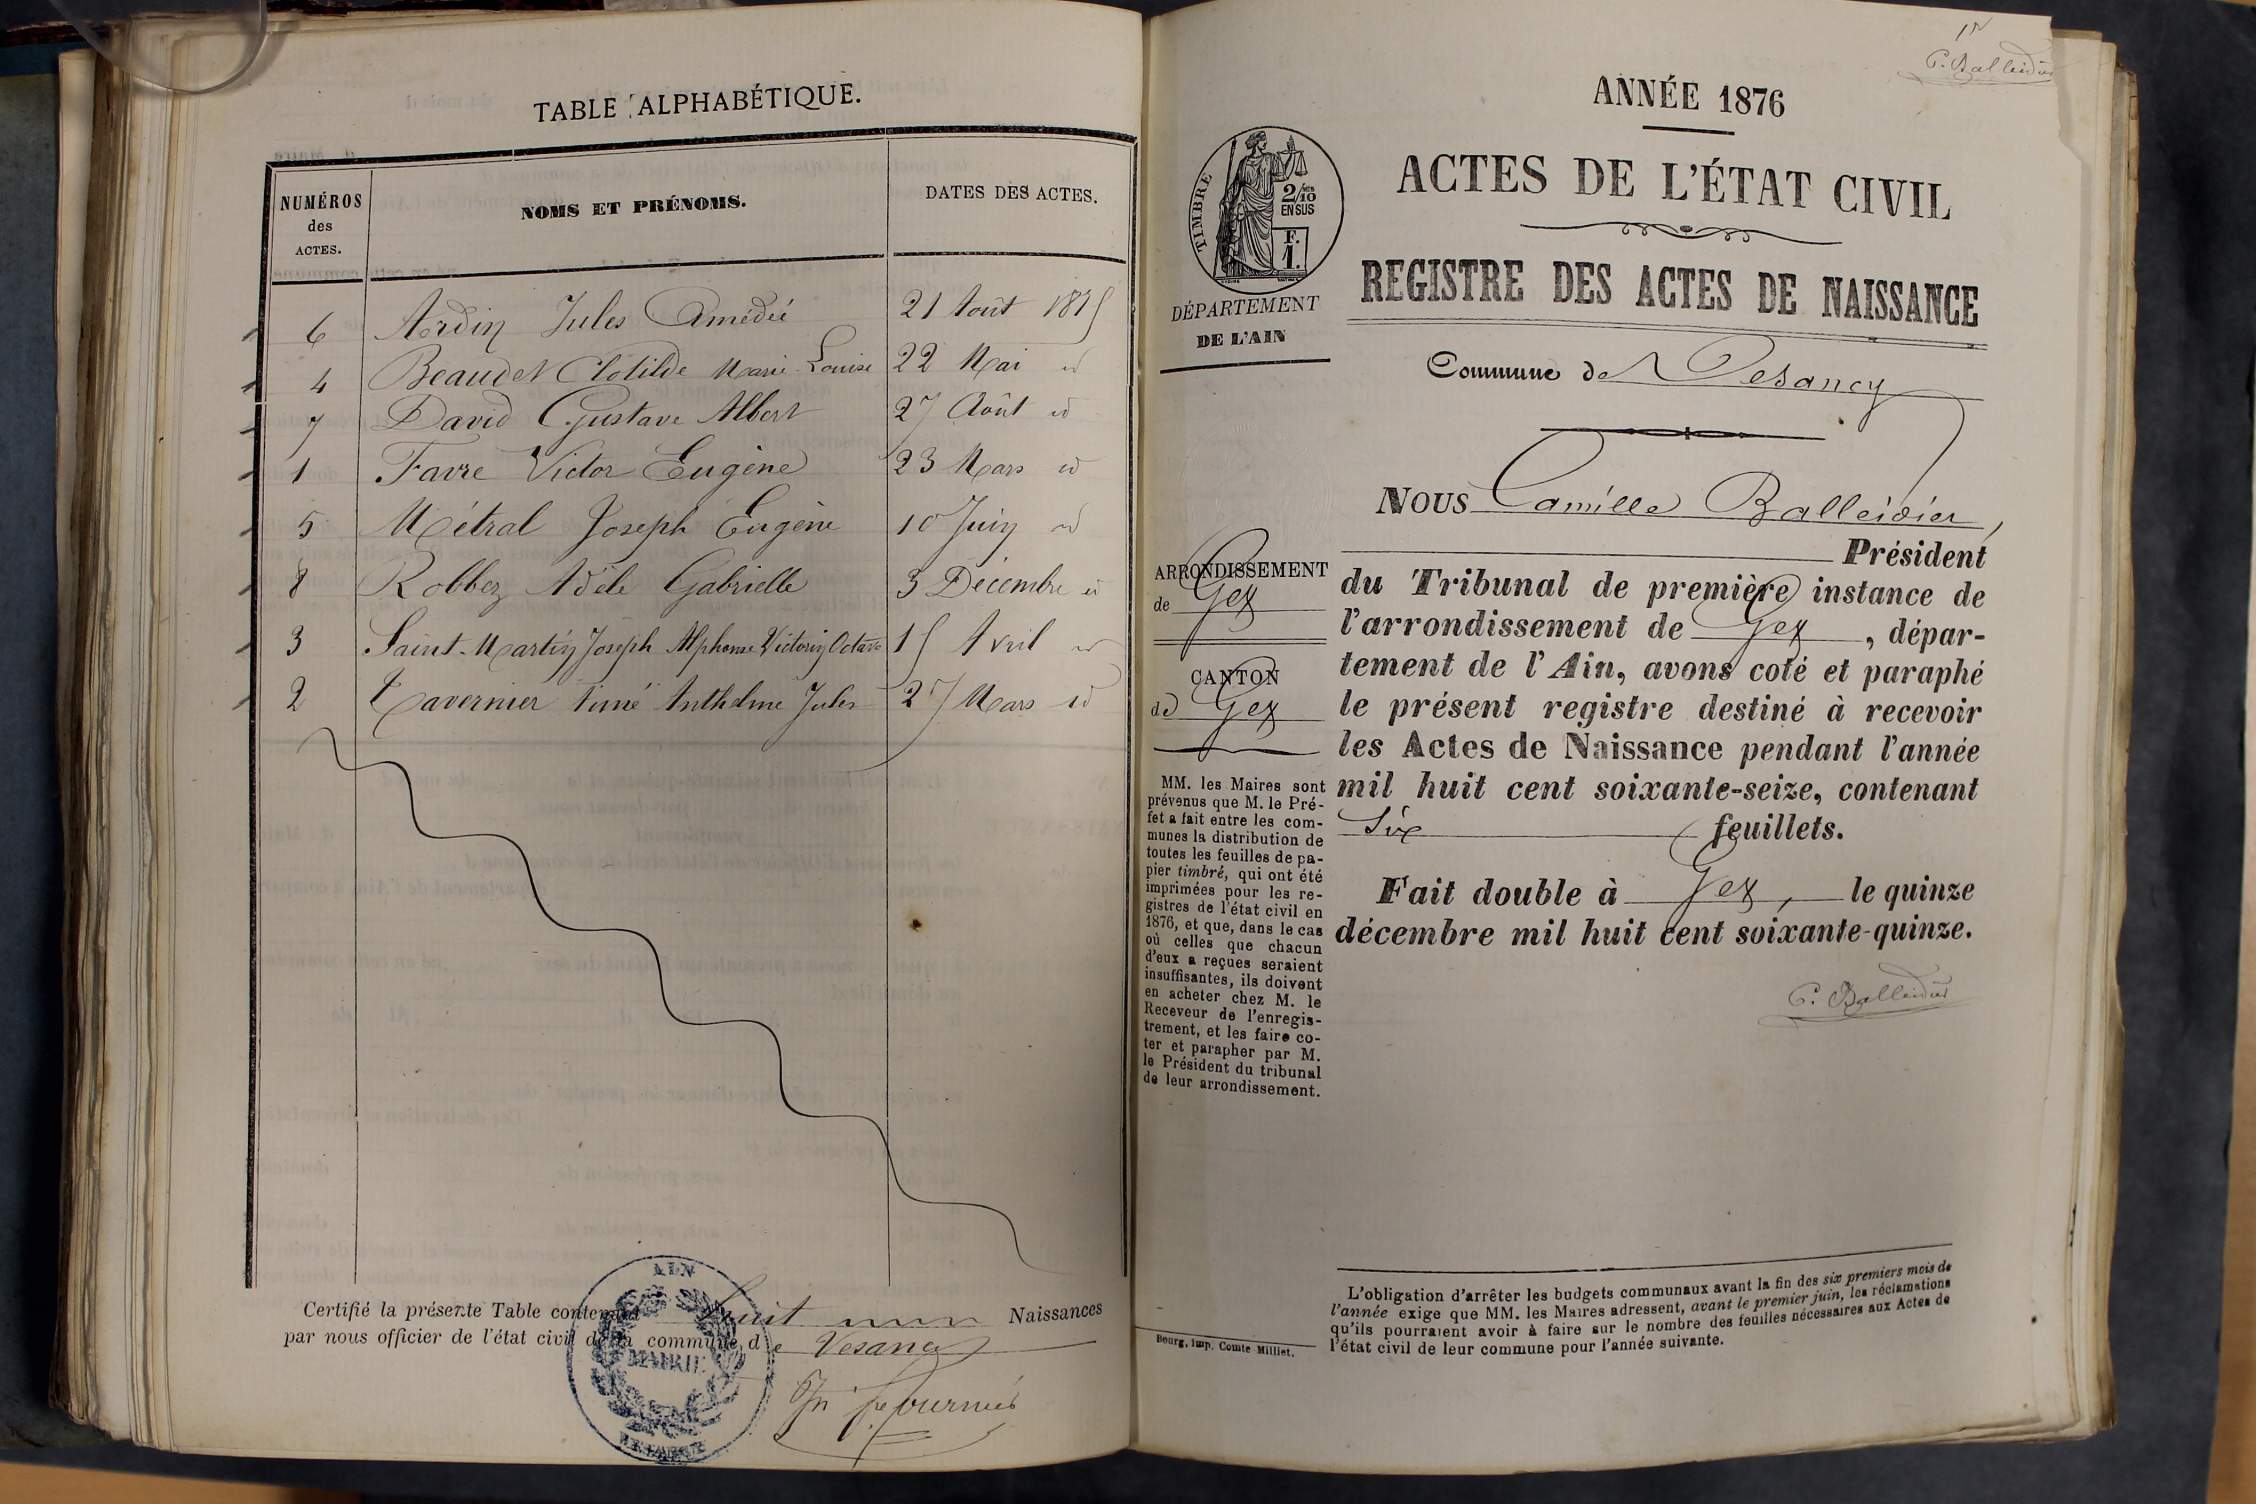 TABLE ALPHABÉTIQUE.
NUMÉROS des ACTES. NOMS ET PRÉNOMS. DATES DES ACTES.
6 Nordin Jules Amédée 21 Août 1875
4 Beaudet Clotilde Marie Louise 22 Mai id
7 David Gustave Albert 27 Août id
1 Favre Victor Eugène 23 Mars id
5 Métral Joseph Eugène 10 Juin id
8 Robbez Adèle Gabrielle 3 Décembre id
3 Saint-Martin Joseph Alphonse Victorin Octave 15 Avril id
2 Tavernier Aimé Anthelme Jules 27 Mars id
Certifié la présente Table contenant huit Naissances
par nous officier de l'état civil de la commune de Vesancy
AIN
MAIRIE
ANNÉE 1876
C. Balleidier
ACTES DE L'ÉTAT CIVIL
REGISTRE DES ACTES DE NAISSANCE
TIMBRE
2/10 EN SUS
F. 1.
DÉPARTEMENT
DE L'AIN
Commune de Vesancy
NOUS Camille Balleidier,
Président
du Tribunal de première instance de
l'arrondissement de Gex, dépar-
tement de l'Ain, avons coté et paraphé
le présent registre destiné à recevoir
les Actes de Naissance pendant l'année
mil huit cent soixante-seize, contenant
Six feuillets.
Fait double à Gex, le quinze
décembre mil huit cent soixante-quinze.
C. Balleidier
ARRONDISSEMENT
de Gex
CANTON
de Gex
MM. les Maires sont
prévenus que M. le Pré-
fet a fait entre les com-
munes la distribution de
toutes les feuilles de pa-
pier timbré, qui ont été
imprimées pour les re-
gistres de l'état civil en
1876, et que, dans le cas
où celles que chacun
d'eux a reçues seraient
insuffisantes, ils doivent
en acheter chez M. le
Receveur de l'enregis-
trement, et les faire co-
ter et parapher par M.
le Président du tribunal
de leur arrondissement.
Bourg, imp. Comte Milliet.
L'obligation d'arrêter les budgets communaux avant la fin des six premiers mois de
l'année exige que MM. les Maires adressent, avant le premier juin, les réclamations
qu'ils pourraient avoir à faire sur le nombre des feuilles nécessaires aux Actes de
l'état civil de leur commune pour l'année suivante.